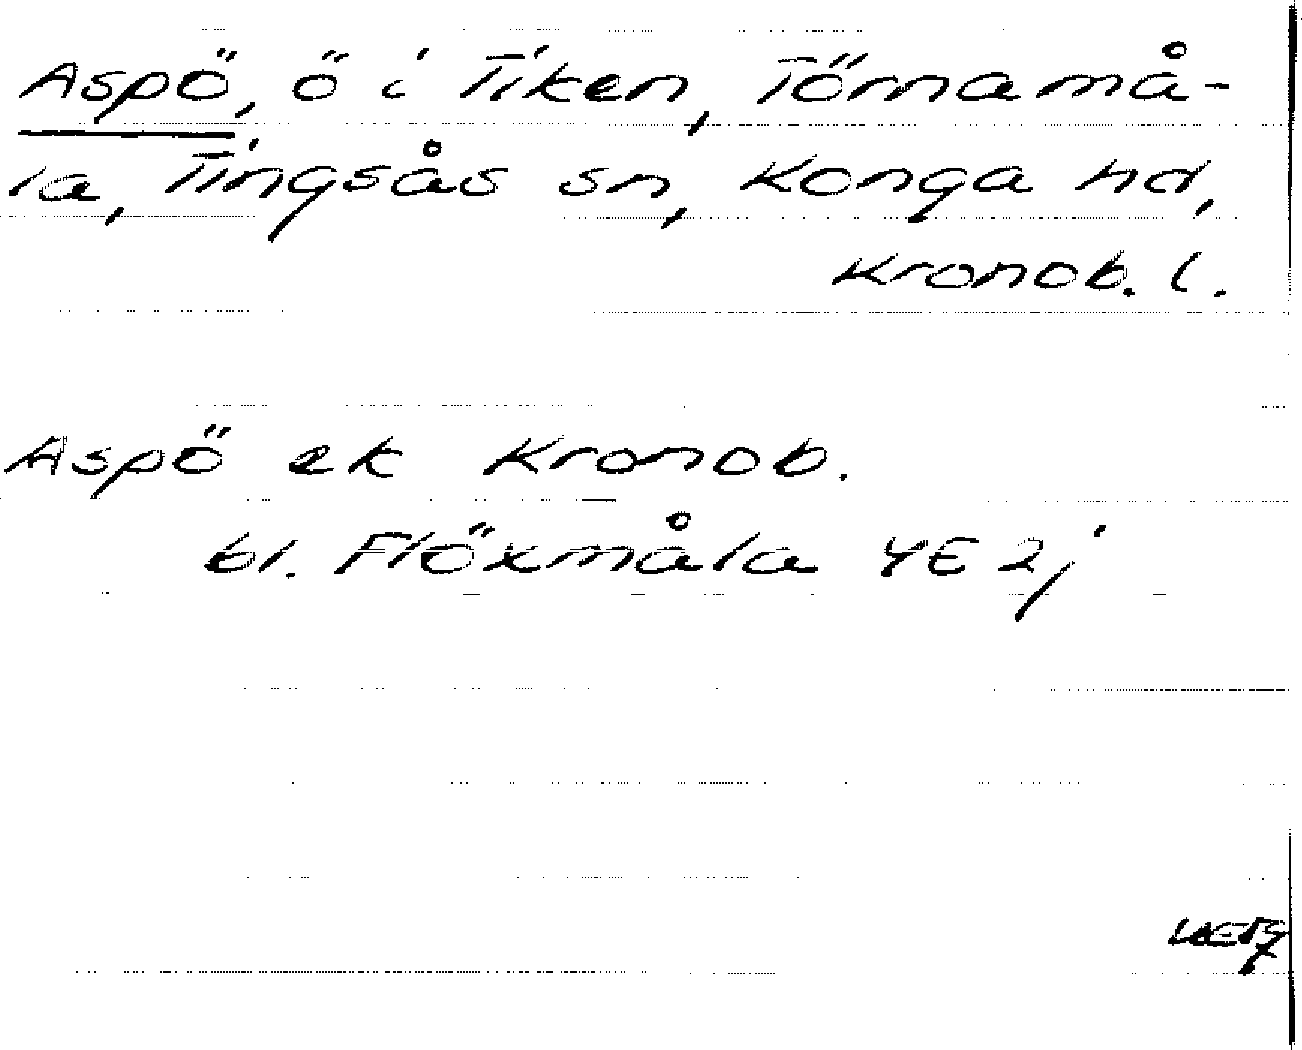 Aspö, ö i Tiken, Törnamå-
la, Tingsås sn, Konga hd,
Kronob. l.
Aspö ek Kronob.
bl. Flöxmåla 4E 2j